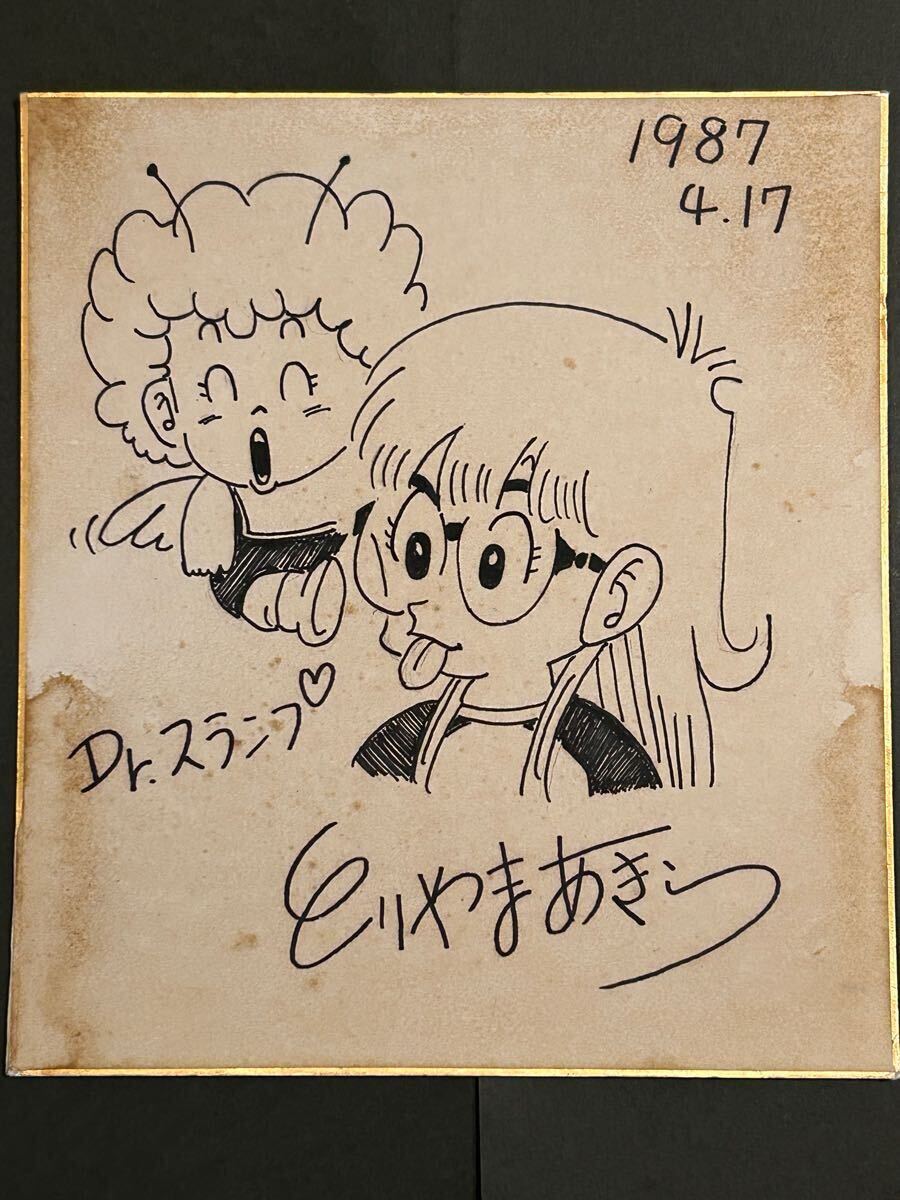 1987
4.17
Dr.スランプ♡
とりやまあきら